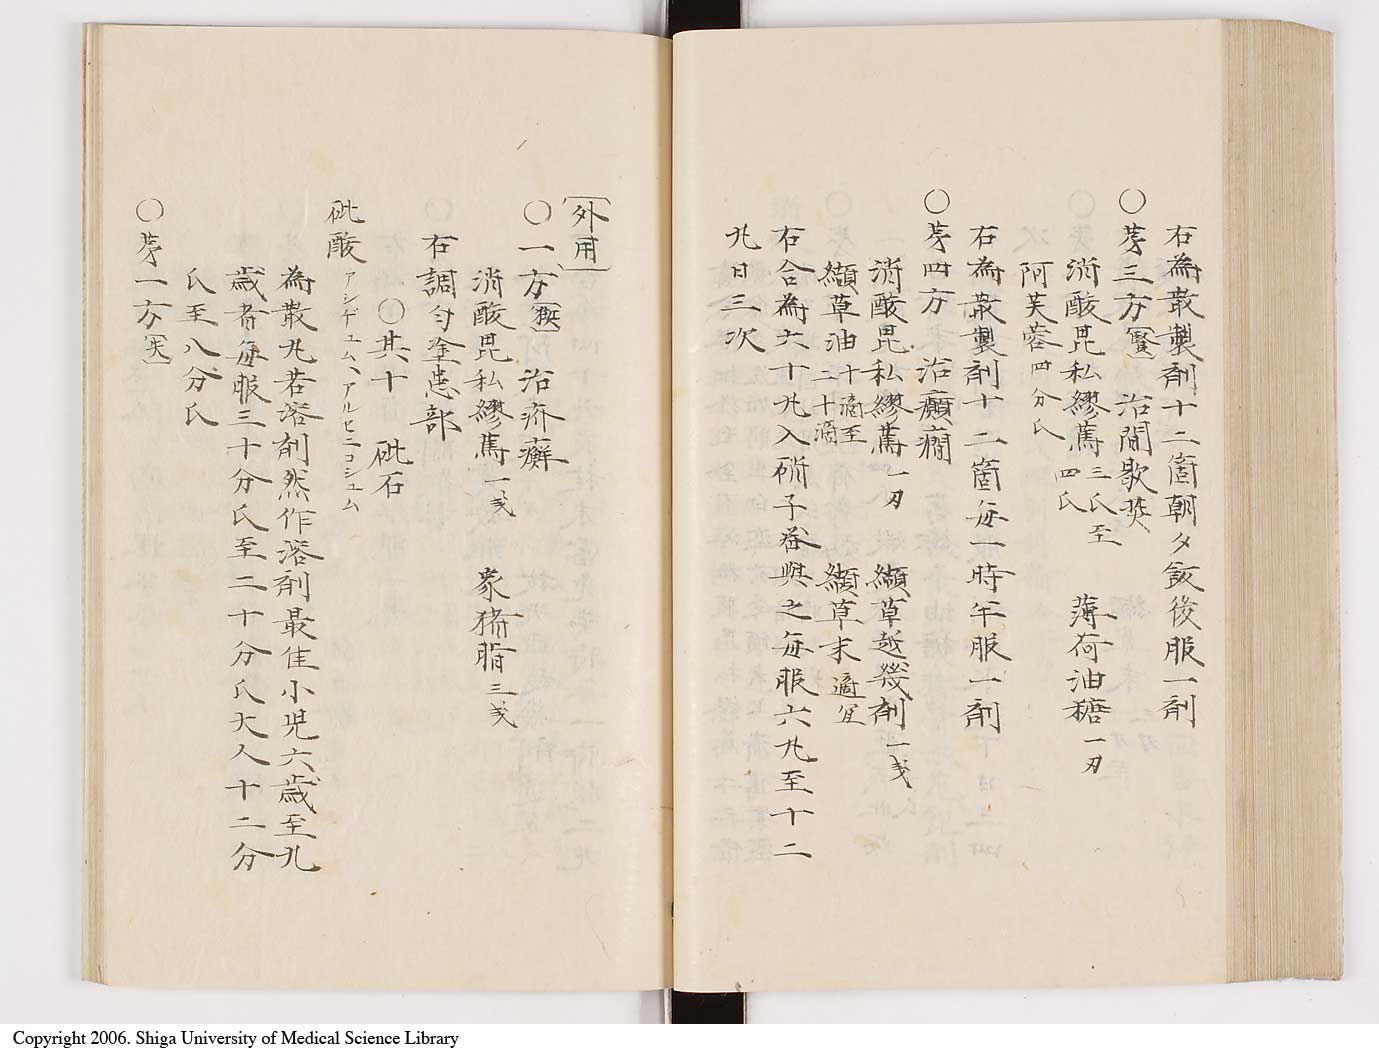 右為散製剤十二箇朝夕飯後服一剤
○第三方〔蜑〕 治間歇熒
消酸毘私繆蔿 三氏至四氏 薄荷油糖 一刃
阿芙蓉 四分氏
右為散製剤十二箇毎一時午服一剤
○第四方 治癲癇
消酸毘私繆蔿 一刃 纈草越幾剤 一戔
纈草油 十滴至二十滴 纈草末 適宜
右合為六十丸入硝子器與之毎服六丸至十二
丸日三次
〔外用〕
○一方〔𤟎〕 治疥癬
消酸毘私繆蔿 一戔 豪猪脂 三戔
右調匀塗患部
○其十 砒石
砒酸 アシデュム、アルセニコシュム
為散丸若溶剤然作溶剤最佳小児六歳至九
歳者毎服三十分氏至二十分氏大人十二分
氏至八分氏
○第一方〔天〕
Copyright 2006. Shiga University of Medical Science Library